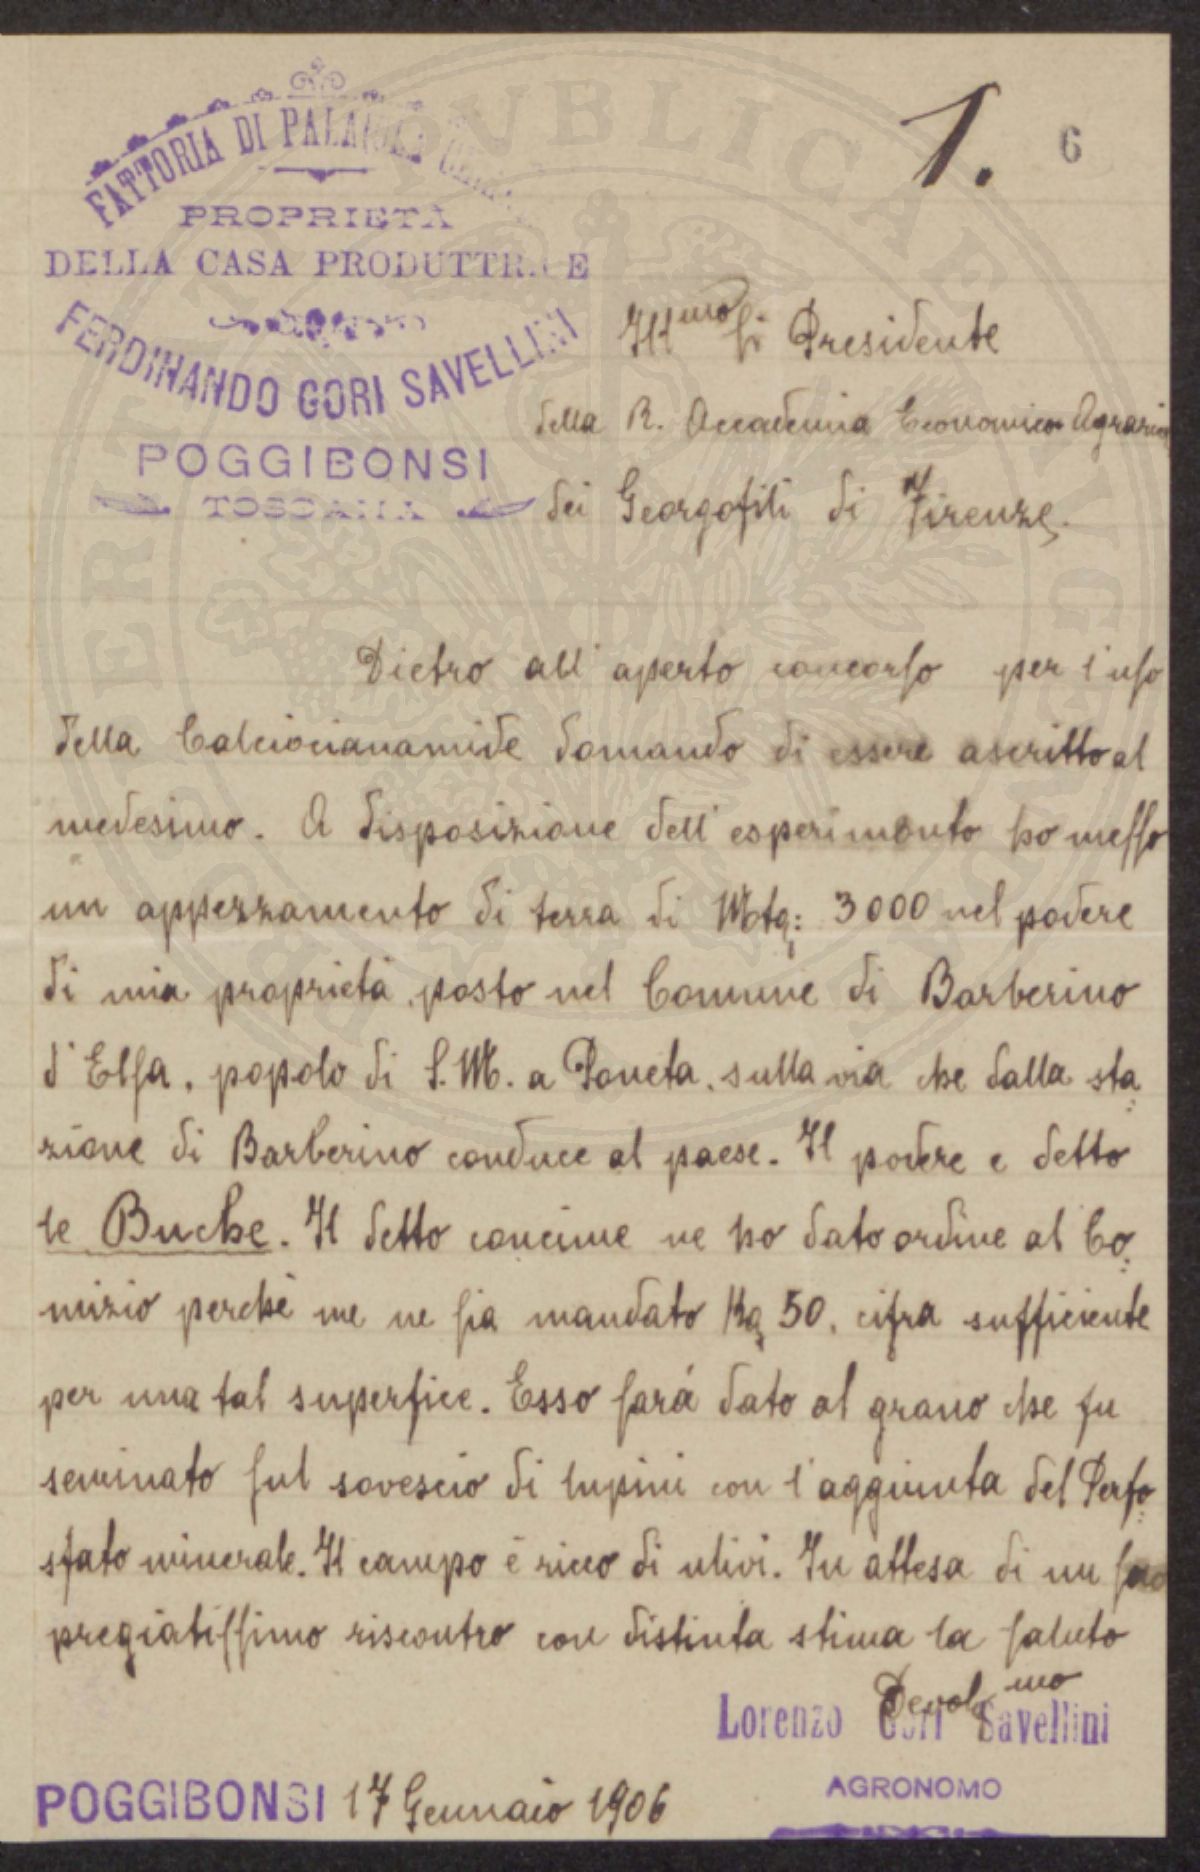 1. 6
FATTORIA DI
PROPRIETÀ
DELLA CASA PRODUTTRICE
FERDINANDO GORI SAVELLINI
POGGIBONSI
TOSCANA
Ill.mo Sr Presidente
della R. Accademia Economico-Agraria
dei Georgofili di Firenze.
Dietro all'aperto concorso per l'uso
della Calciocianamide domando di essere ascritto al
medesimo. A disposizione dell'esperimento ho messo
un appezzamento di terra di Mtq: 3000 nel podere
di mia proprietà, posto nel Comune di Barberino
d'Elsa, popolo di S. M. a Poneta, sulla via che dalla sta
zione di Barberino conduce al paese. Il podere e detto
le Buche. Il detto concime ne ho dato ordine al Co=
mizio perchè me ne sia mandato Kg 50, cifra sufficiente
per una tal superfice. Esso sarà dato al grano che fu
seminato sul sovescio di lupini con l'aggiunta del Perfo=
sfato minerale. Il campo è ricco di ulivi. In attesa di un suo
pregiatissimo riscontro con distinta stima la saluto
Devot.mo
Lorenzo Gori Savellini
AGRONOMO
POGGIBONSI 17 Gennaio 1906
PUBLICAE